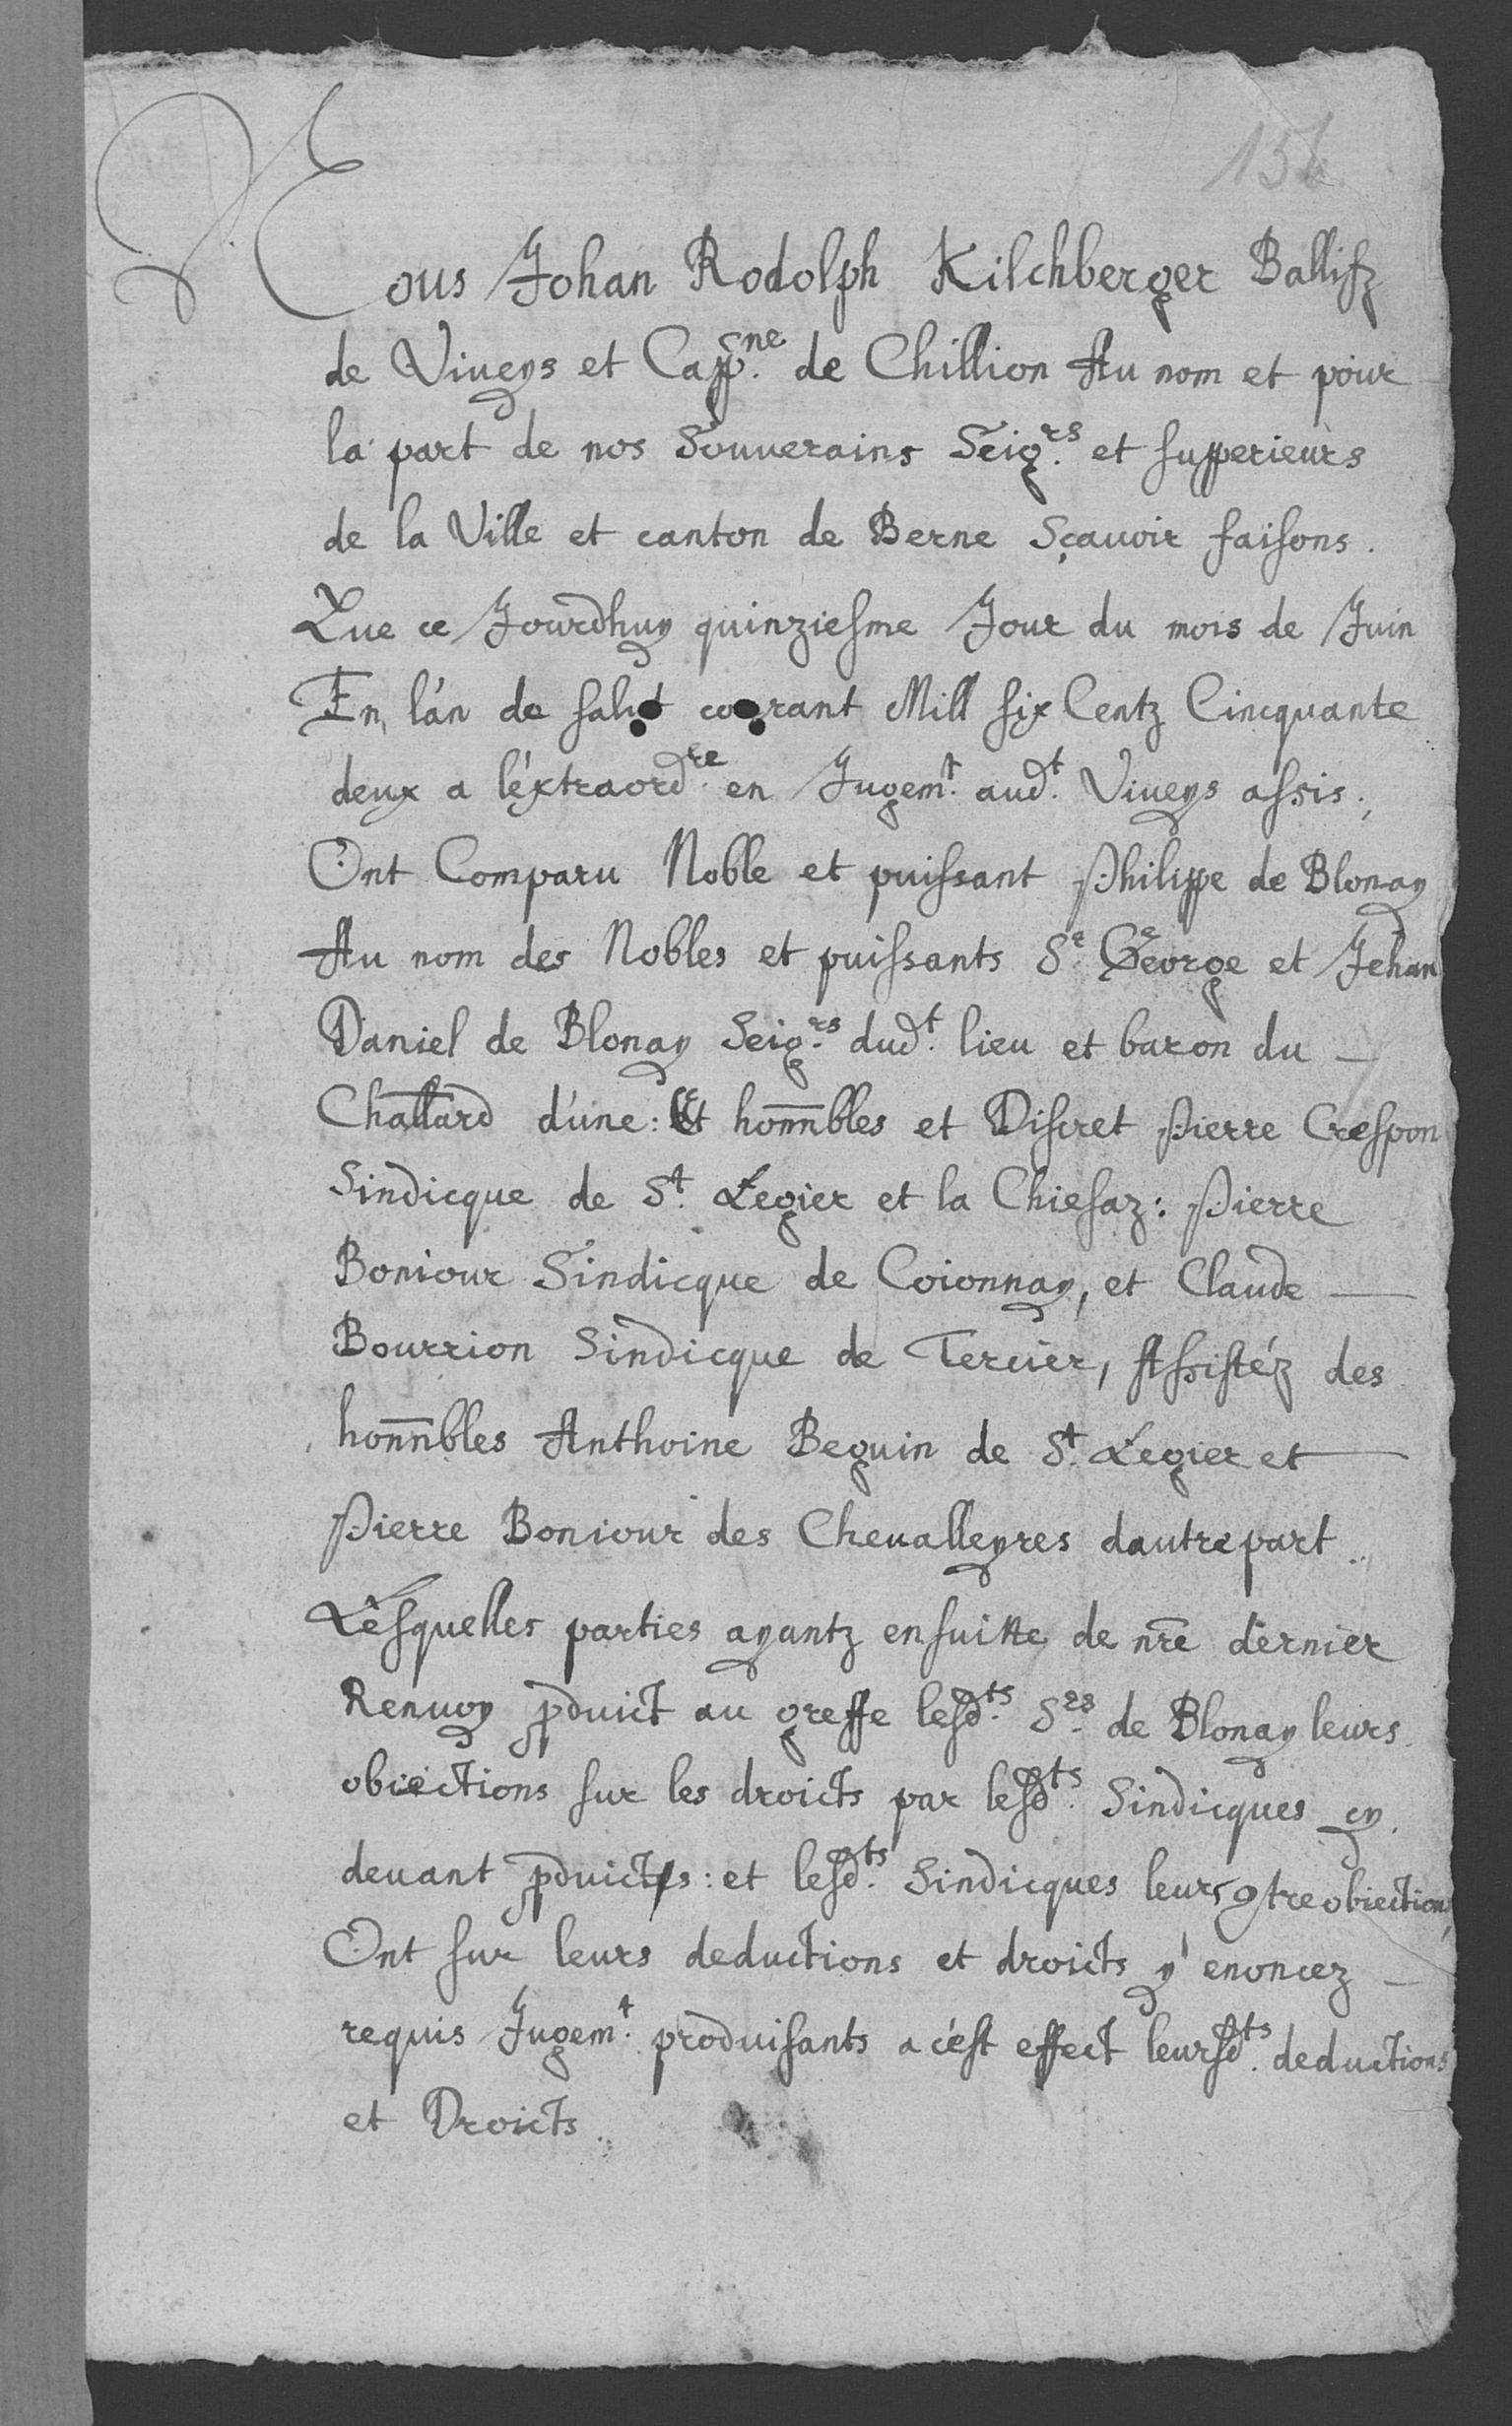 Nous Johan Rodolph Kilchberger Ballifz
de Viueys et Capp.ne de Chillion Au nom et pour
la part de nos Souuerains Seig.rs et supperieurs
de la Ville et canton de Berne Sçauoir faisons.
Que ce Jourdhuy quinziesme Jour du mois de Juin
En lán de salut courant Mill six Centz Cincquante
deux a léxtraord.re en Jugem.t aud.t Viueys assis.,
Ont Comparu Noble et puissant Philippe de Blonay
Au nom des Nobles et puissants S.r George et Jehan
Daniel de Blonay Seig.rs dud.t lieu et baron du —
Chattard d'une: Et honnbles et Discret Pierre Crespon
Sindicque de S.t Legier et la Chiesaz: Pierre
Boniour Sindicque de Coionnay, et Claude —
Bourrion Sindicque de Tercier, Assistéz des
honnbles Anthoine Beguin de S.t Legier et —
Pierre Boniour des Cheualleyres dautre part..
Lesquelles parties ayantz ensuitte de nre dernier
Renuoy pduict au greffe lesd.ts S.rs de Blonay leurs
obiections sur les droicts par lesd.ts Sindicques cy
deuant pduicts: et lesd.ts Sindicques leurs 9treobiection,
Ont sur leurs deductions et droicts y enoncez —
requis Jugem.t produisants a cést effect leursd.ts deductions
et Droicts.